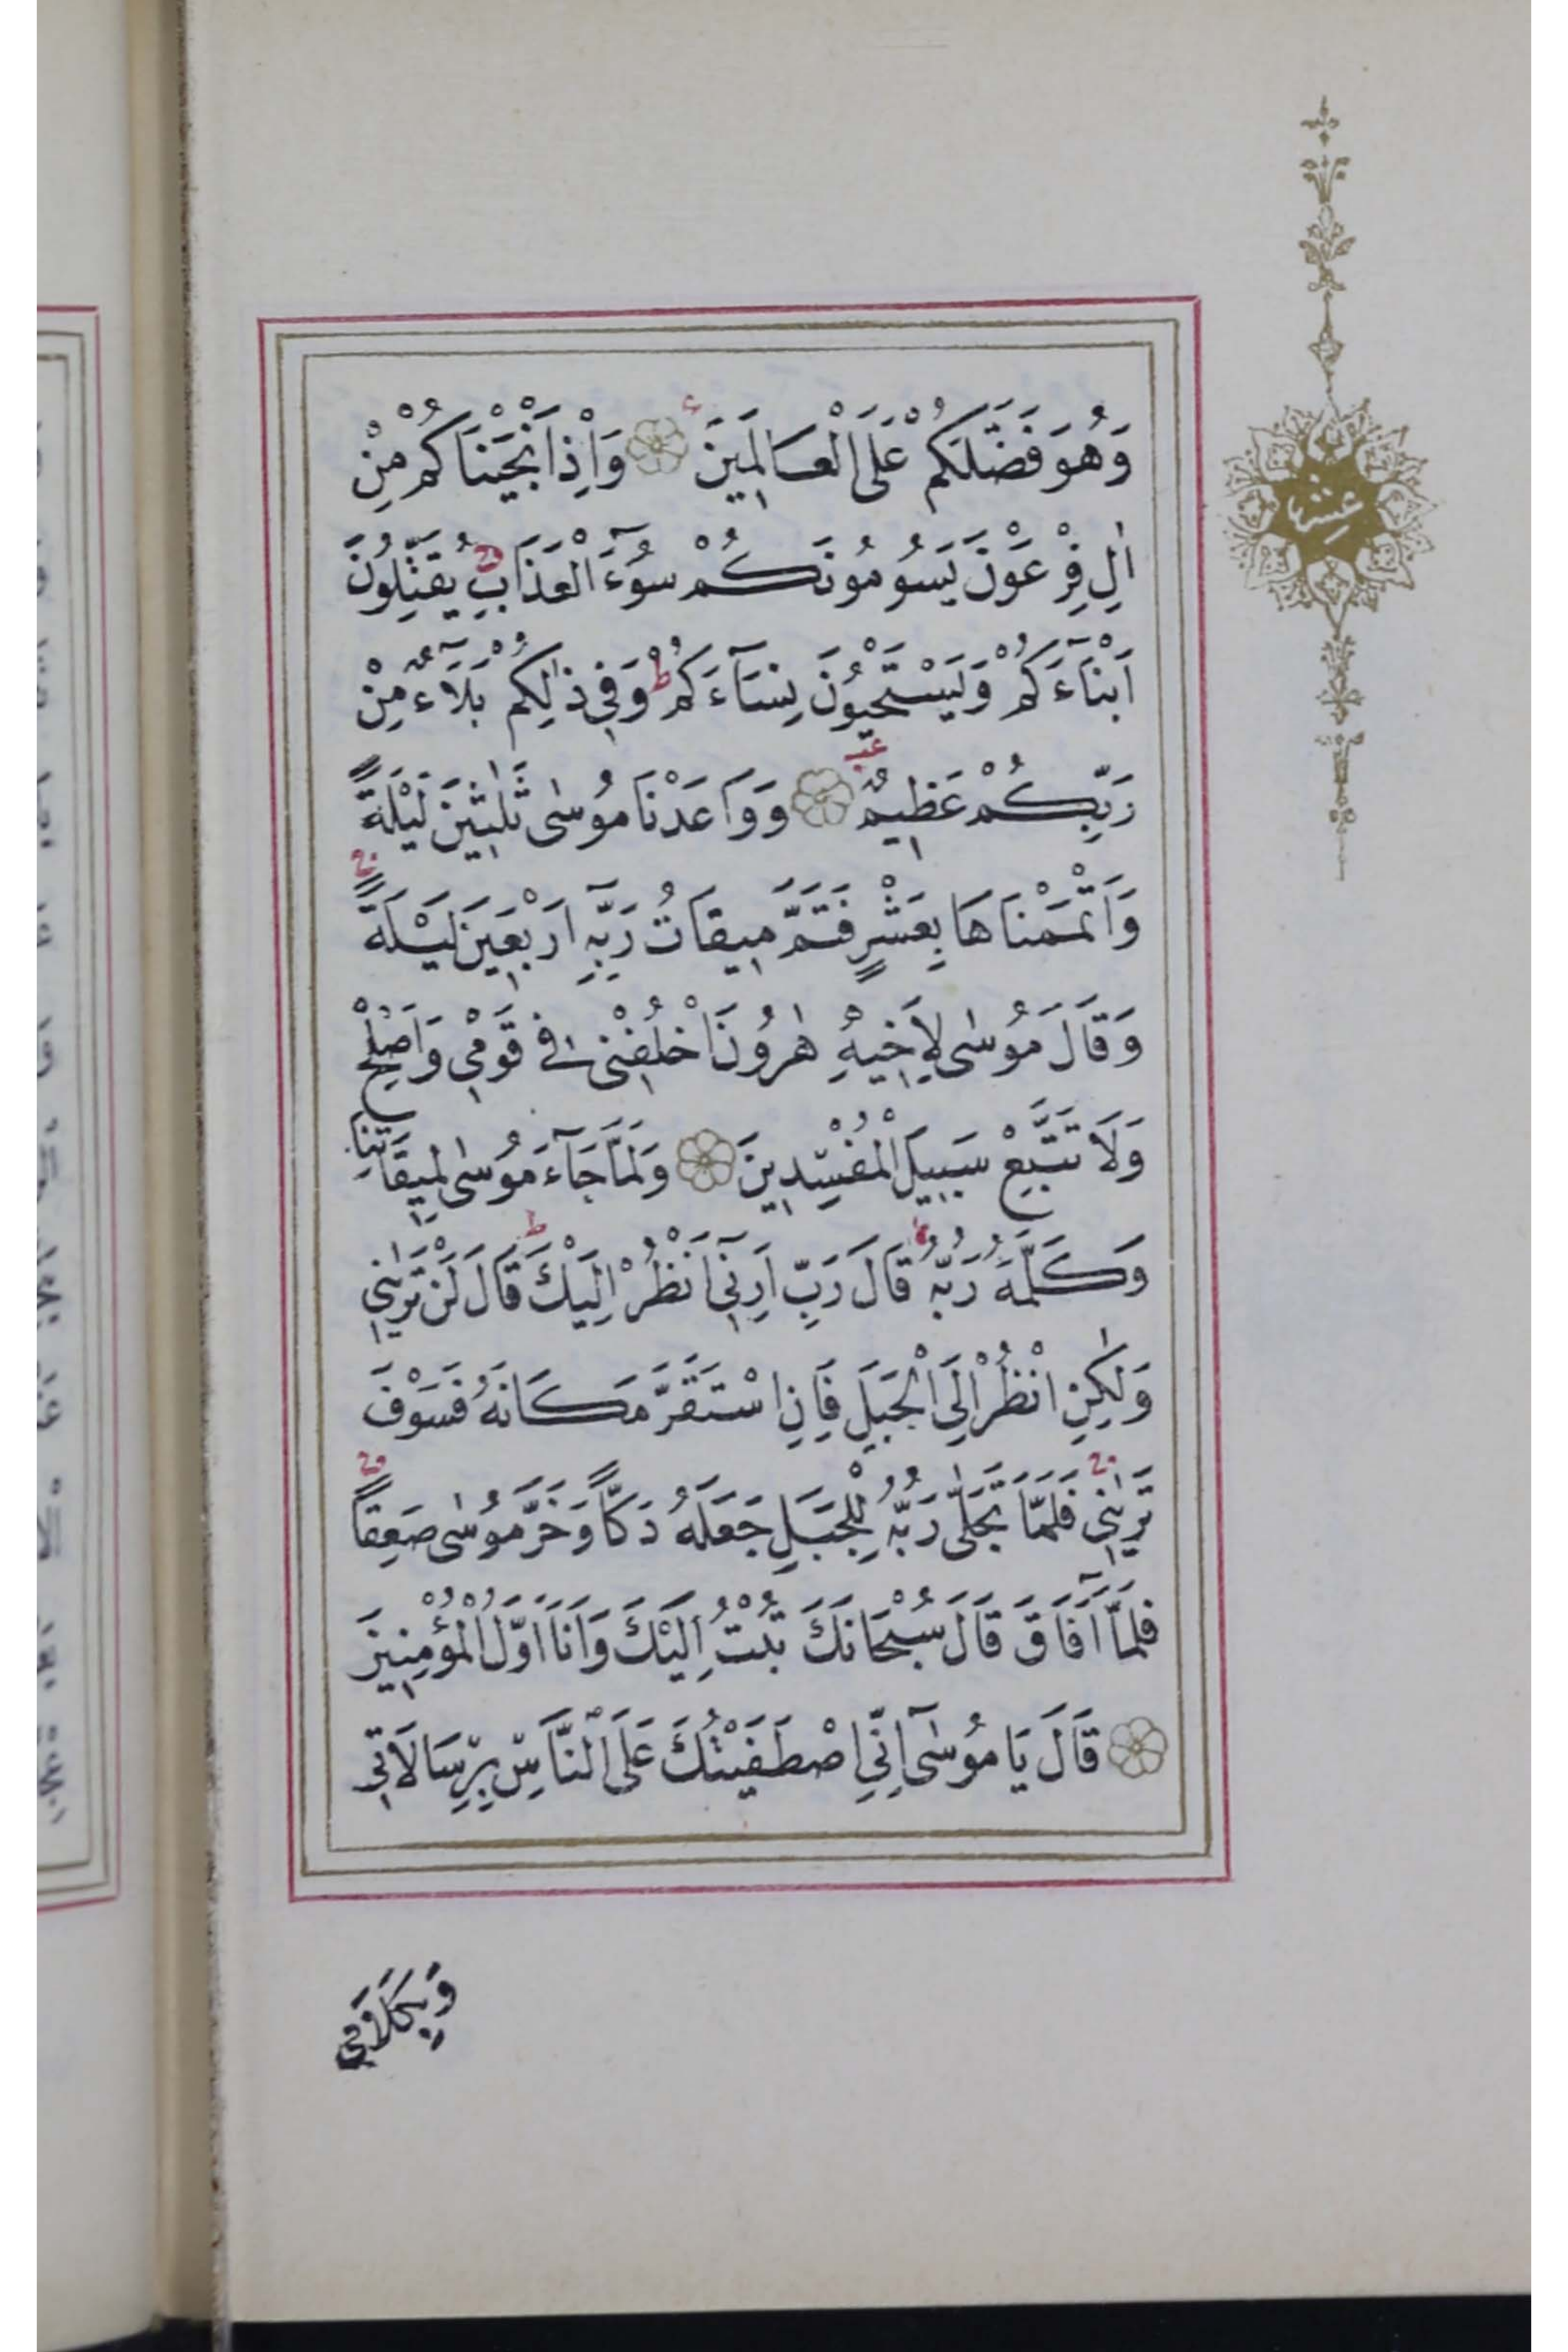 وَهُوَ فَضَّلَكُمْ عَلَى الْعَالَمِينَ وَاِذْ اَنْجَيْنَاكُمْ مِنْ
اٰلِ فِرْعَوْنَ يَسُومُونَكُمْ سُوٓءَ الْعَذَابِ يُقَتِّلُونَ
اَبْنَآءَكُمْ وَيَسْتَحْيُونَ نِسَآءَكُمْ ط وَفِي ذٰلِكُمْ بَلَآءٌ مِنْ
رَبِّكُمْ عَظِيمٌ وَوَاعَدْنَا مُوسٰى ثَلٰثِينَ لَيْلَةً
وَاَتْمَمْنَاهَا بِعَشْرٍ فَتَمَّ مِيقَاتُ رَبِّهِ اَرْبَعِينَ لَيْلَةً
وَقَالَ مُوسٰى لِاَخِيهِ هٰرُونَ اخْلُفْنِي فِي قَوْمِي وَاَصْلِحْ
وَلَا تَتَّبِعْ سَبِيلَ الْمُفْسِدِينَ وَلَمَّا جَآءَ مُوسٰى لِمِيقَاتِنَا
وَكَلَّمَهُ رَبُّهُ قَالَ رَبِّ اَرِنِيٓ اَنْظُرْ اِلَيْكَ ط قَالَ لَنْ تَرٰينِي
وَلٰكِنِ انْظُرْ اِلَى الْجَبَلِ فَاِنِ اسْتَقَرَّ مَكَانَهُ فَسَوْفَ
تَرٰينِي فَلَمَّا تَجَلّٰى رَبُّهُ لِلْجَبَلِ جَعَلَهُ دَكًّا وَخَرَّ مُوسٰى صَعِقًا
فَلَمَّآ اَفَاقَ قَالَ سُبْحَانَكَ تُبْتُ اِلَيْكَ وَاَنَا اَوَّلُ الْمُؤْمِنِينَ
قَالَ يَا مُوسٰٓى اِنِّي اصْطَفَيْتُكَ عَلَى النَّاسِ بِرِسَالَاتِي
وَبِكَلَامِي
عشر